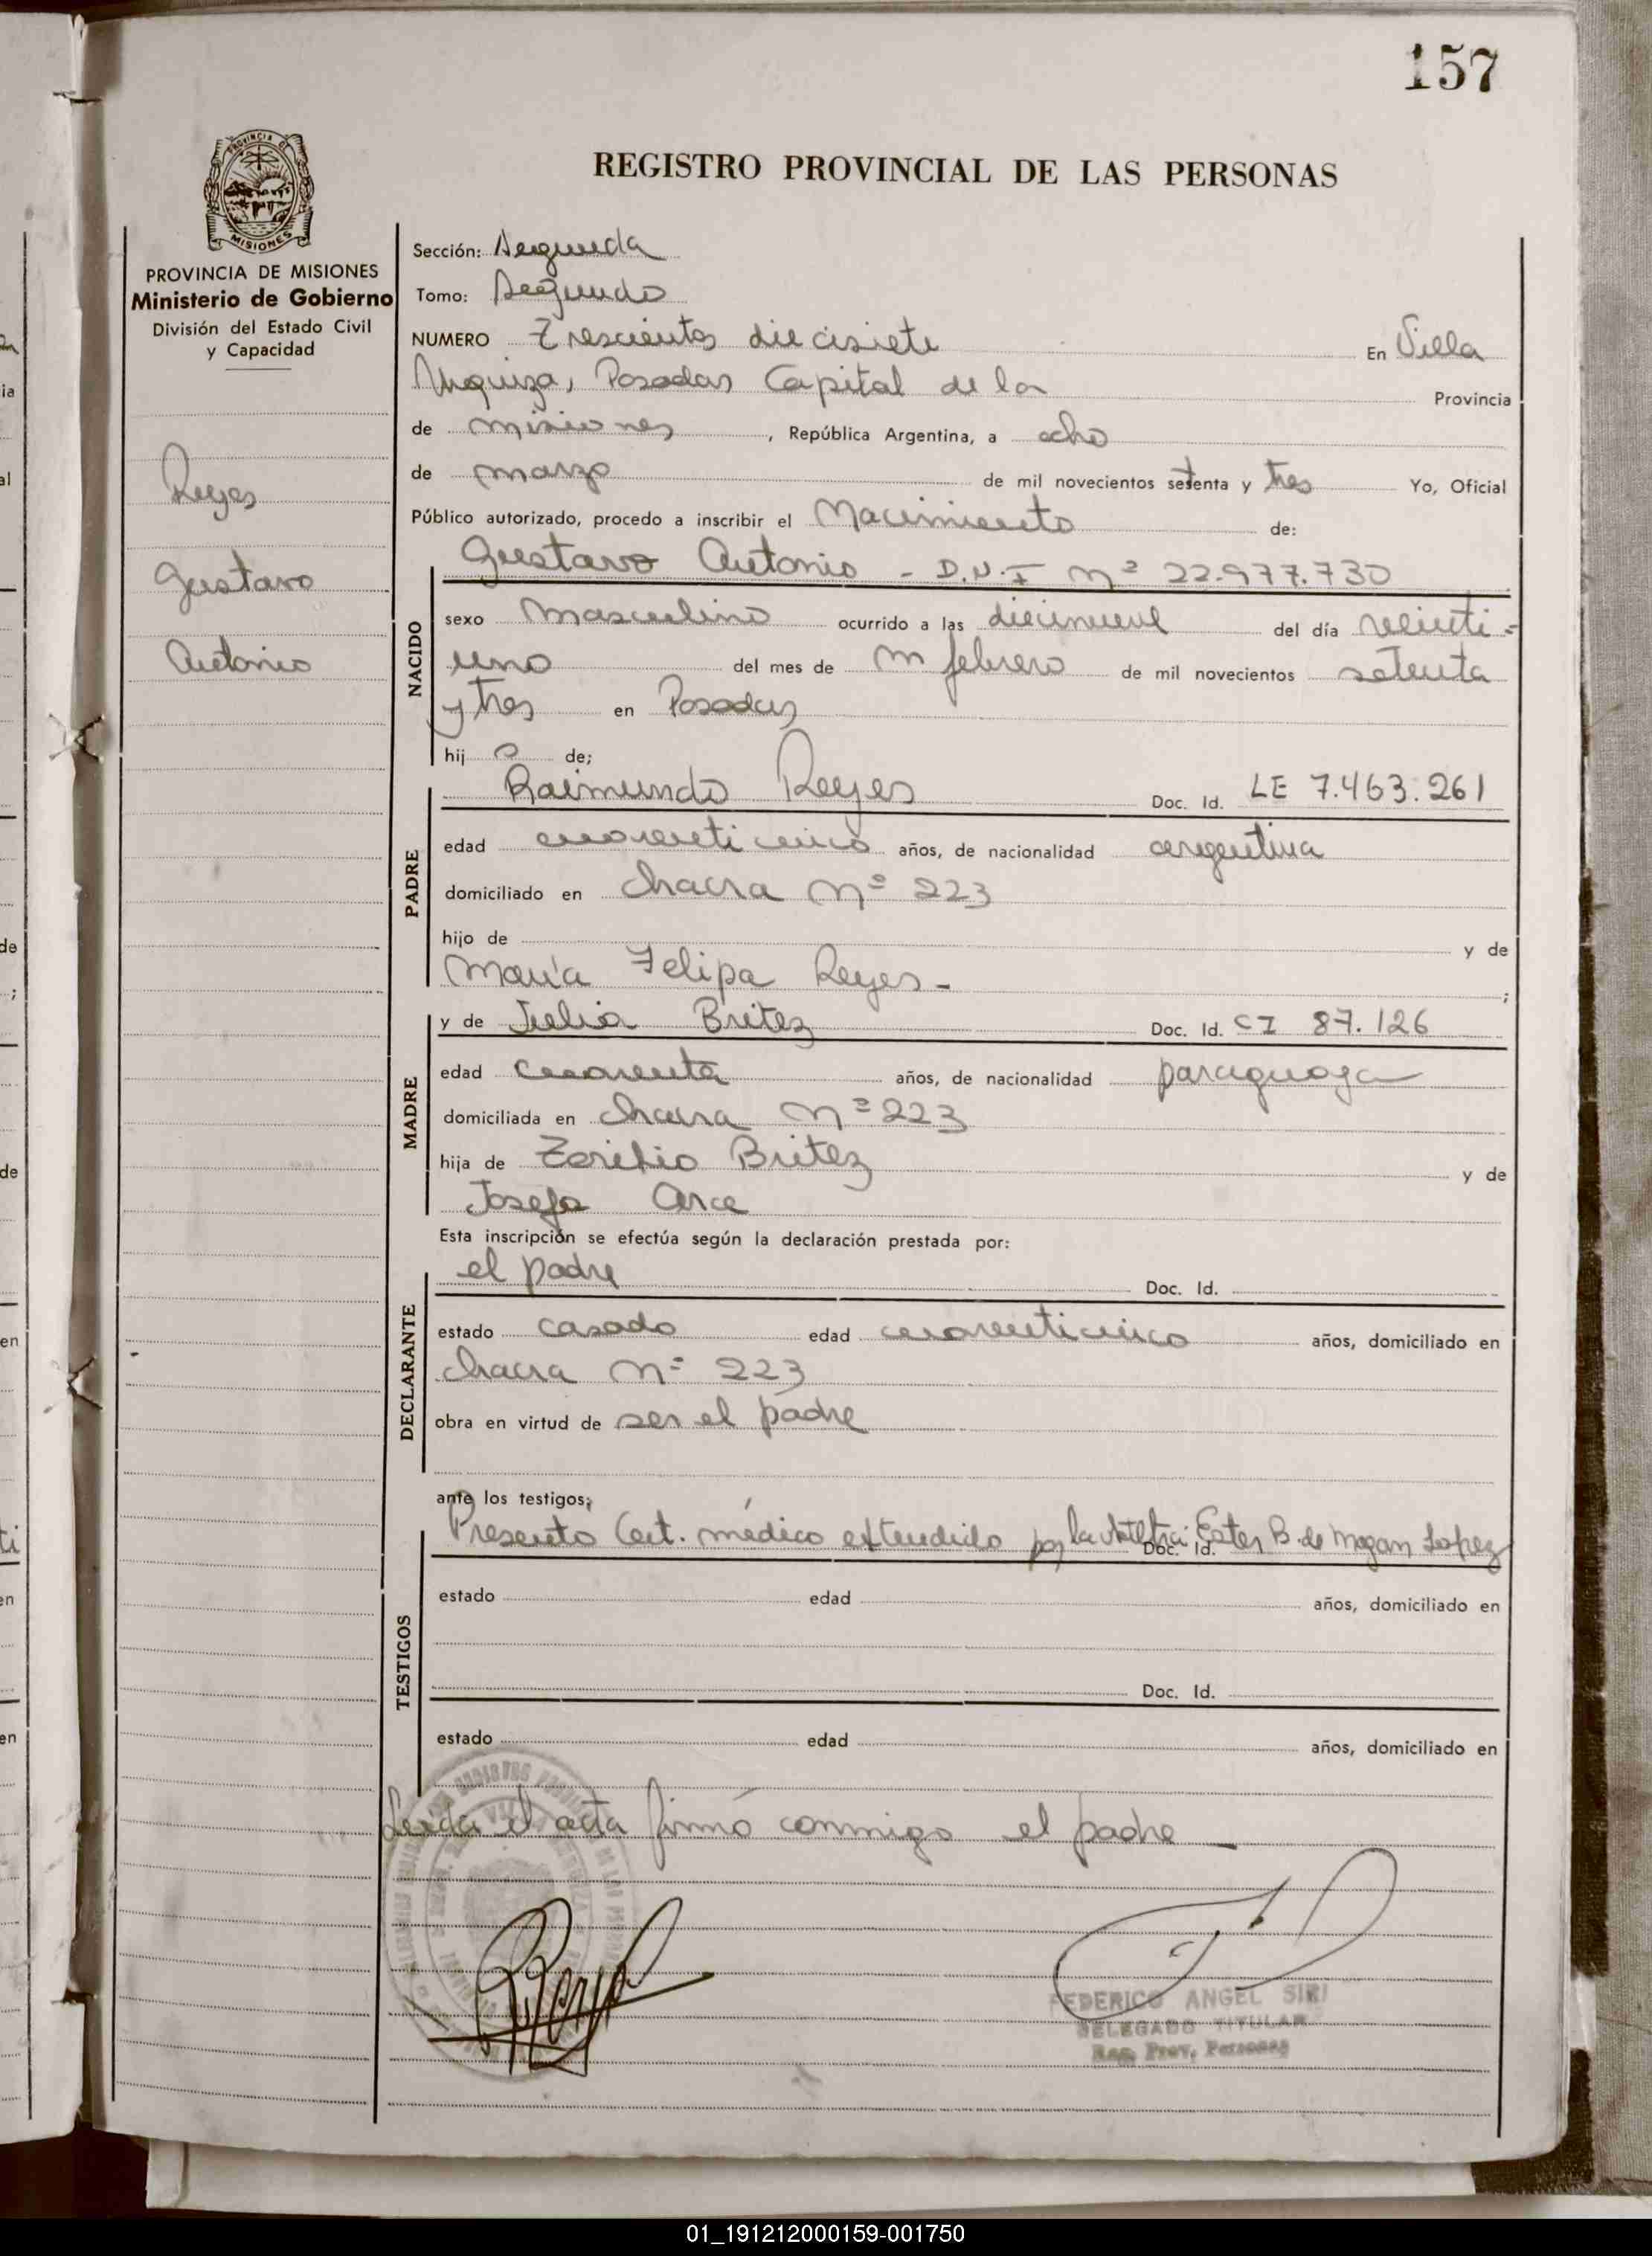 157
PROVINCIA DE
MISIONES
PROVINCIA DE MISIONES
Ministerio de Gobierno
División del Estado Civil
y Capacidad
Reyes
Gustavo
Antonio
REGISTRO PROVINCIAL DE LAS PERSONAS
Sección: Segunda
Tomo: Segundo
NUMERO Trescientos diecisiete En Villa
Urquiza, Posadas Capital de la Provincia
de misiones, República Argentina, a ocho
de marzo de mil novecientos setenta y tres Yo, Oficial
Público autorizado, procedo a inscribir el Nacimiento de:
Gustavo Antonio - D.N.I nº 22.977.730
NACIDO
sexo masculino ocurrido a las diecinueve del día veinti=
uno del mes de febrero de mil novecientos setenta
y tres en Posadas
hij o de;
PADRE
Raimundo Reyes Doc. Id. LE 7.463.261
edad cuarenticinco años, de nacionalidad argentina
domiciliado en chacra nº 223
hijo de y de
María Felipa Reyes - ;
MADRE
y de Julia Britez Doc. Id. CI 87.126
edad cuarenta años, de nacionalidad paraguaya
domiciliada en chacra nº 223
hija de Britez y de
Josefa Arce
Esta inscripción se efectúa según la declaración prestada por:
DECLARANTE
el padre Doc. Id.
estado casado edad cuarenticinco años, domiciliado en
chacra nº 223
obra en virtud de ser el padre
ante los testigos;
TESTIGOS
Presentó Cert. médico extendido por la Ester B. de Lopez
Doc. Id.
estado edad años, domiciliado en
Doc. Id.
estado edad años, domiciliado en
Leída el acta firmó conmigo el padre
FEDERICO ANGEL SIRI
DELEGADO TITULAR
Reg. Prov. Personas
01_191212000159-001750